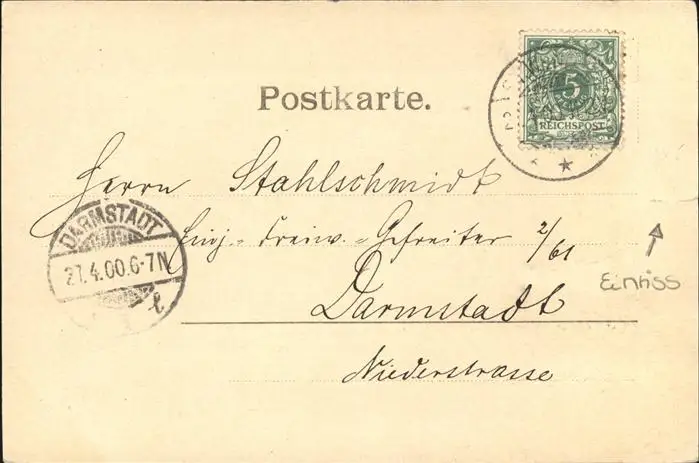 5
REICHSPOST
Postkarte.
Herrn Stahlschmidt
Einj.-Freiw.-Gefreiter 2/61
DARMSTADT
27.4.00.6-7N
Einriss
Darmstadt
Niederstrasse